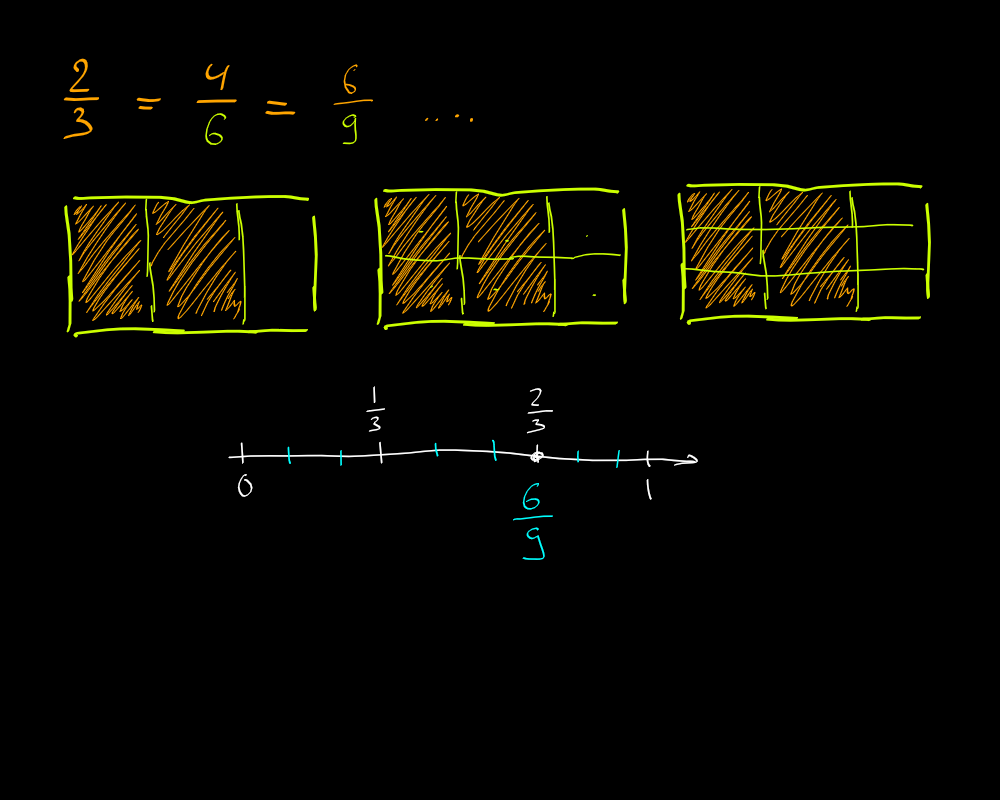 2/3 = 4/6 = 6/9 .....
1/3 2/3
0 1
6/9